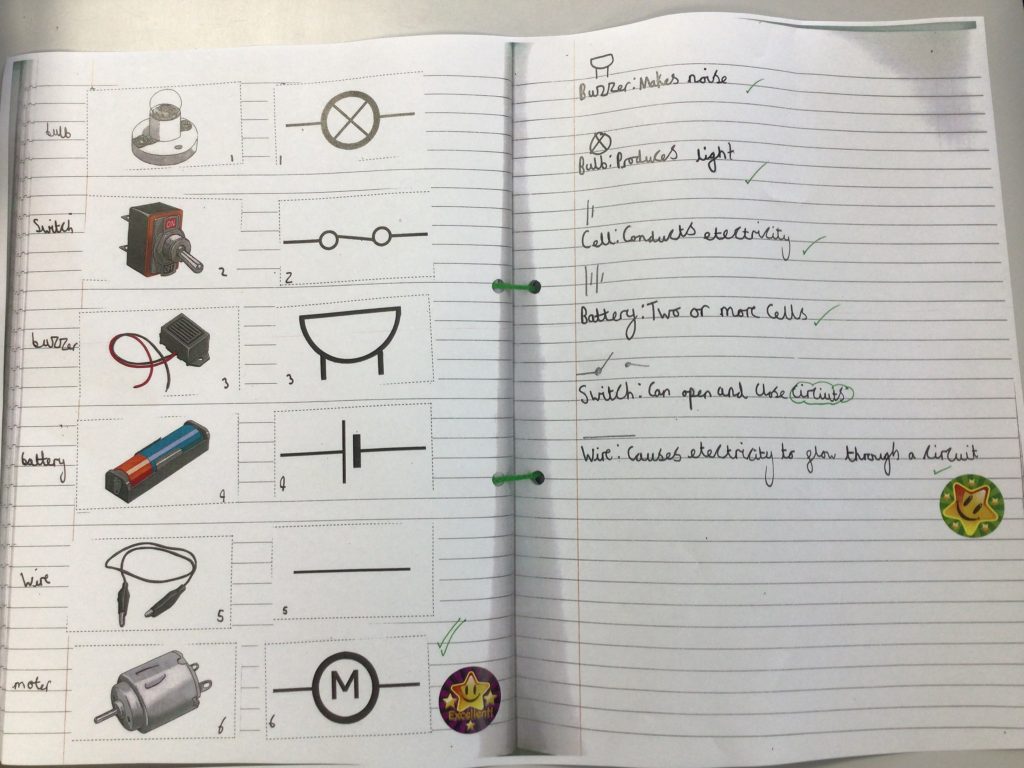 bulb
1
1
Switch
ON
2
2
buzzer
3
3
battery
4
4
Wire
5
5
moter
M
6
6
Excellent!
Buzzer: Makes noise
Bulb: Produces light
Cell: Conducts electricity
Battery: Two or more cells
Switch: Can open and close circiuts
Wire: Causes electricity to glow through a circuit